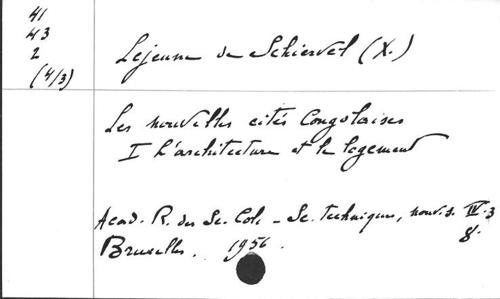 41
43
2
(4/3)
Lejeune de Schiervel (X.)
Les nouvelles cités Congolaises
I L'architecture et le logement
Acad. R. des Sc. Col. - Sc. techniques, nouv. s. IV. 3
Bruxelles. 1956. 8°